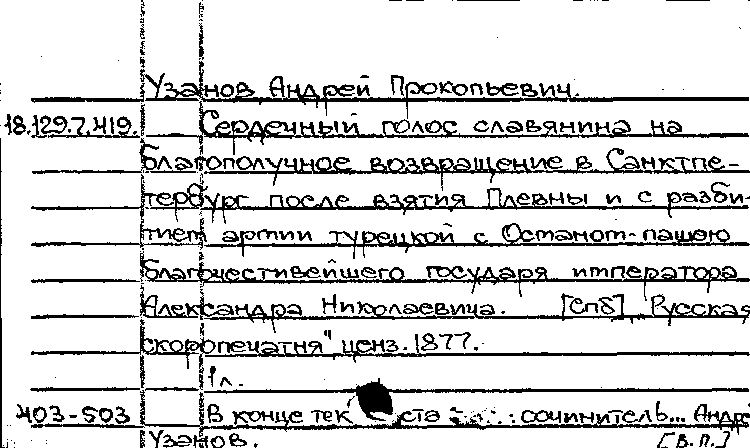 Узанов, Андрей Прокопьевич.
18.129.7.419. Сердечный голос славянина на
благополучное возвращение в Санктпе-
тербург после взятия Плевны и с разби-
тием армии турецкой с Осматом-пашею
благочестивейшего государя императора
Александра Николаевича. [Спб], Русская
скоропечатня" ценз. 1877.
1л.
403-503 В конце текста : сочинитель... Андре
Узанов. [В.П.]